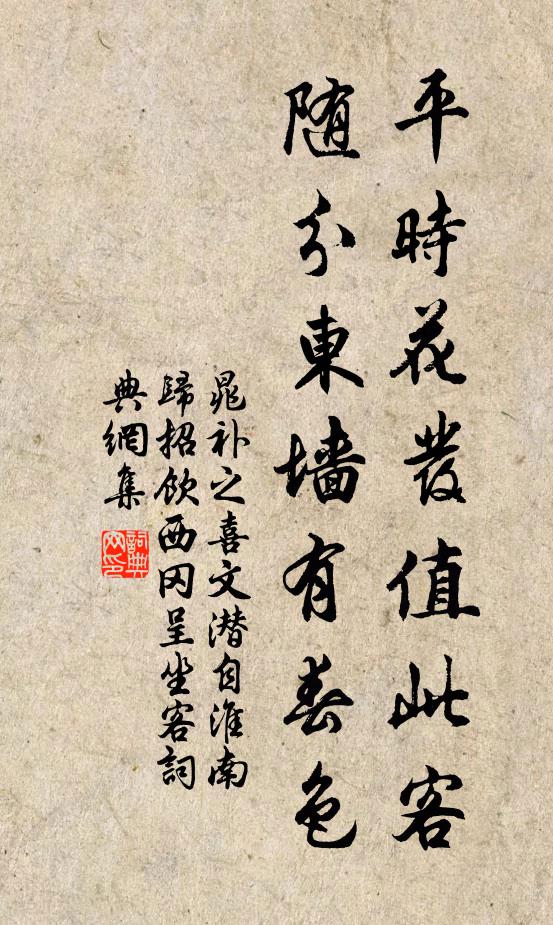 平時花發值此客
随分東墻有春色
晁补之喜文潜自淮南
歸招飲西冈呈坐客詞
典網集
詞典网印